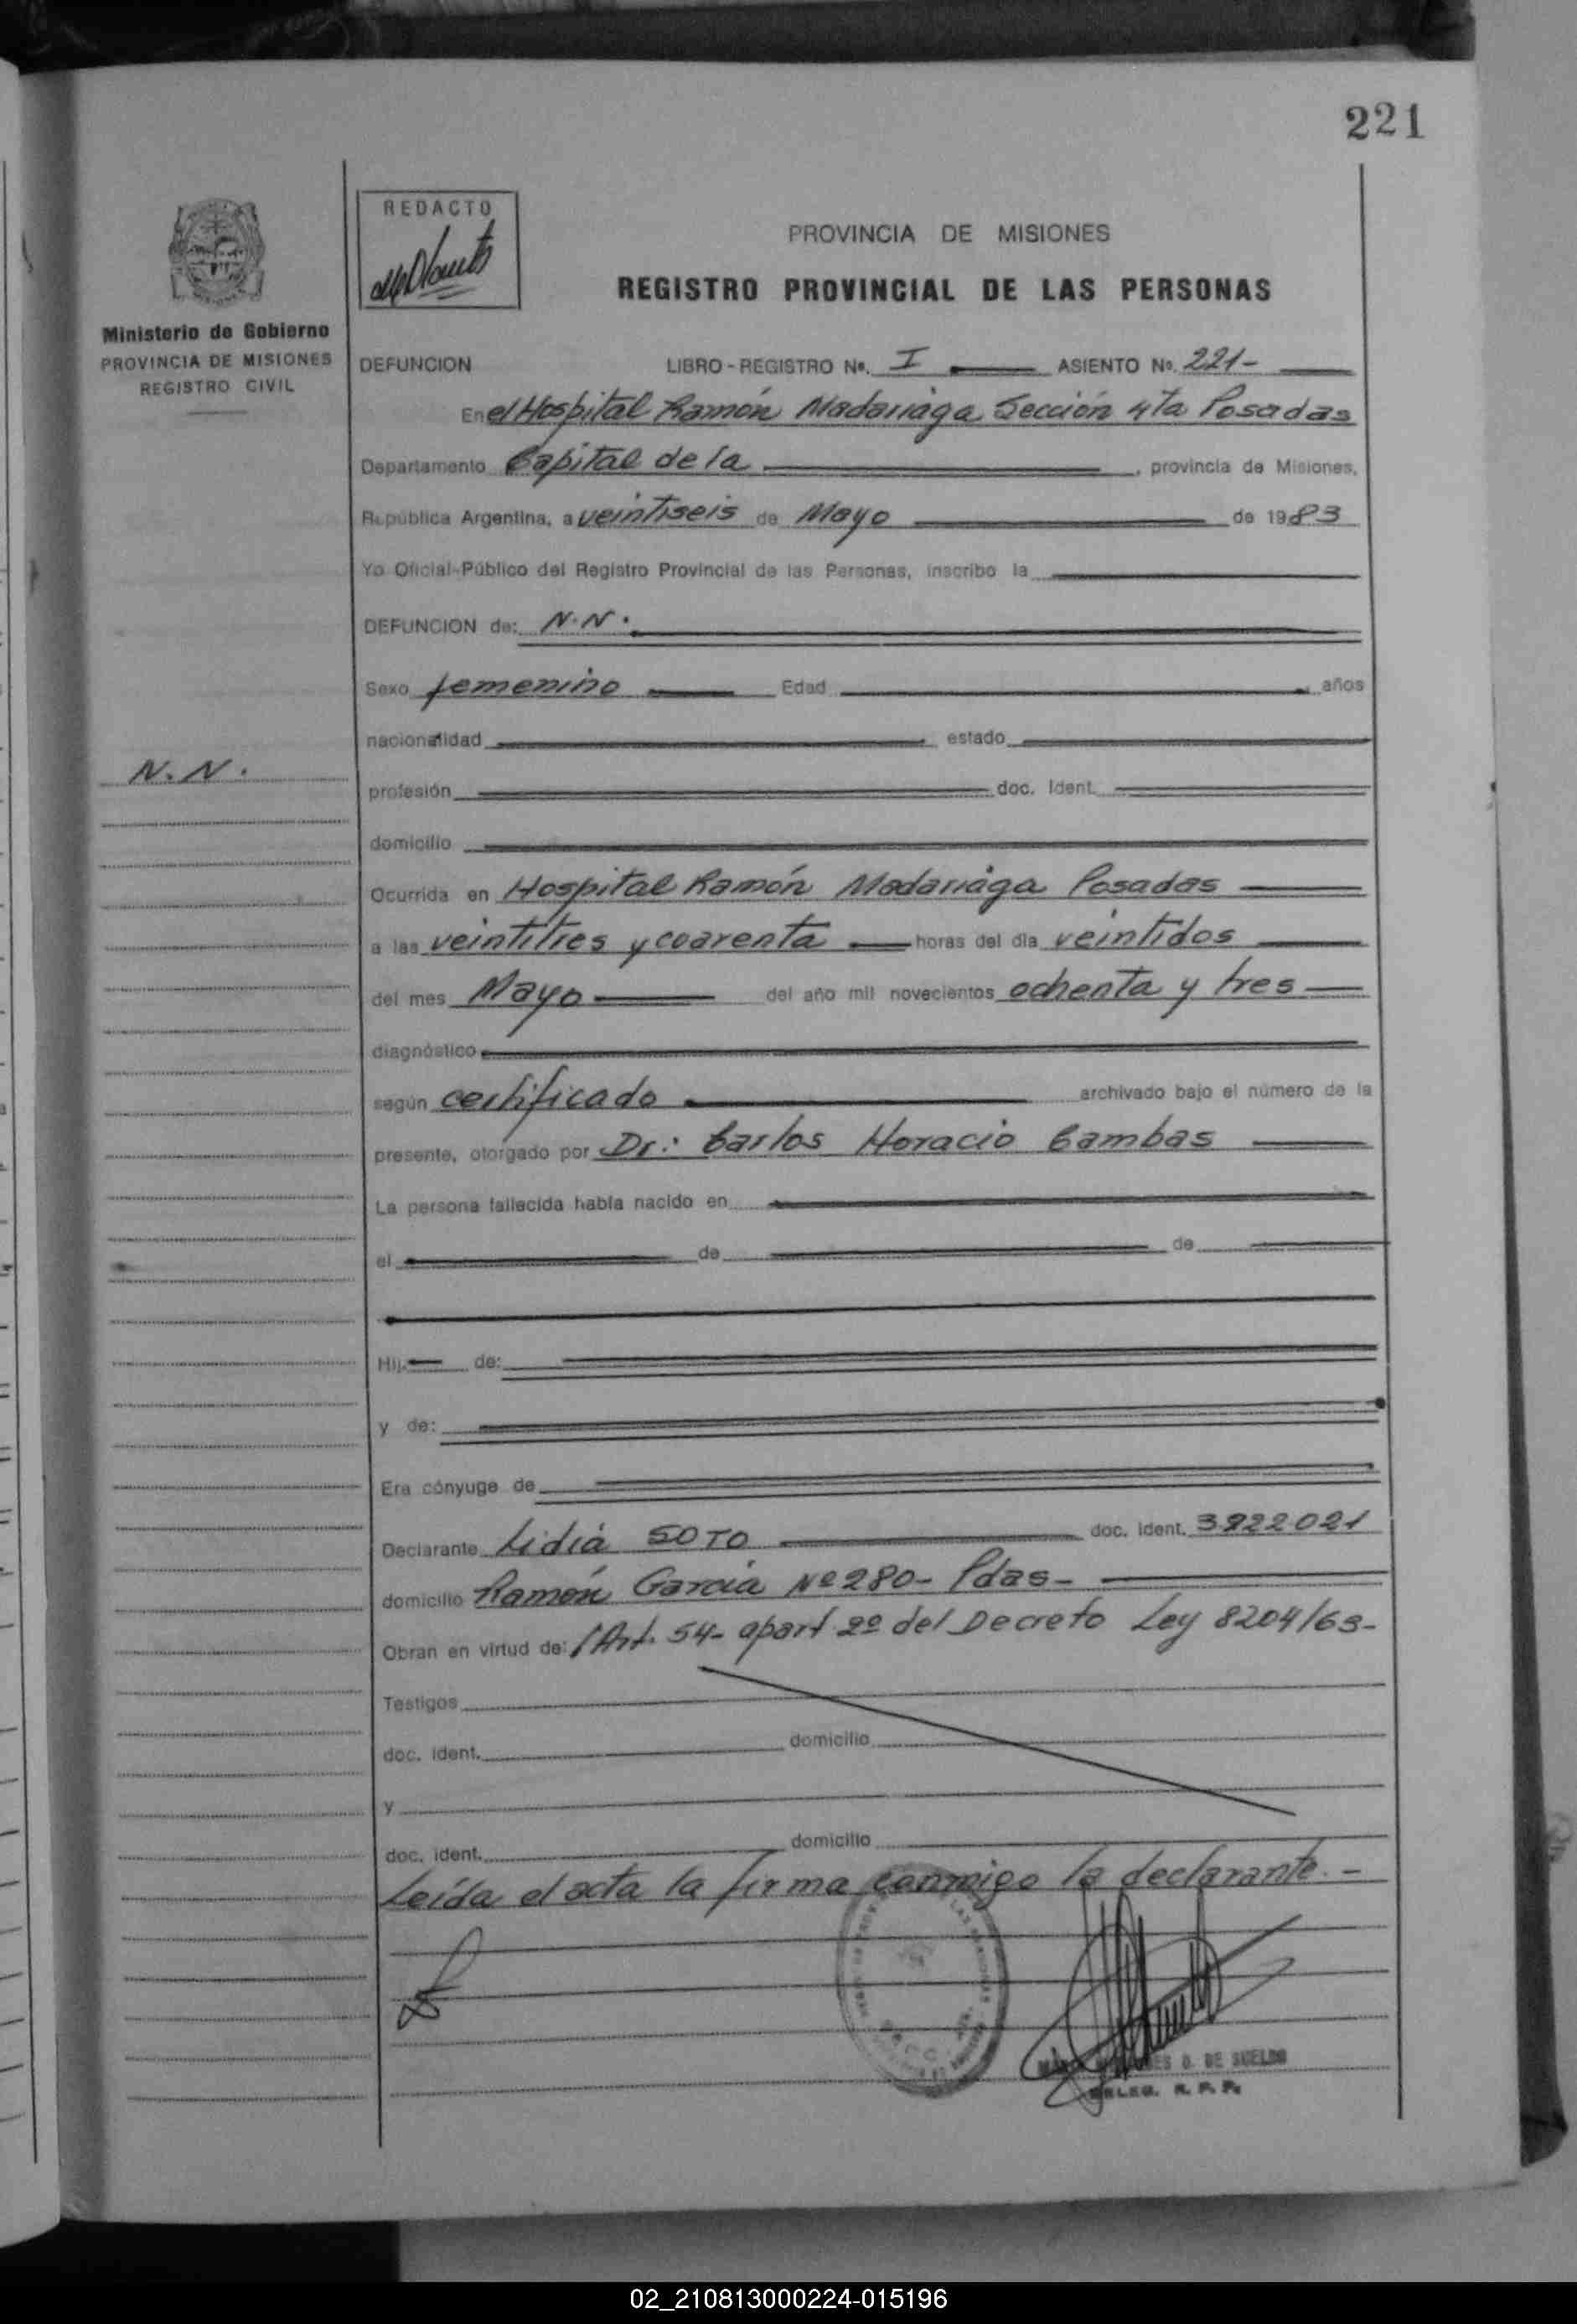 221
REDACTO
PROVINCIA DE MISIONES
REGISTRO PROVINCIAL DE LAS PERSONAS
Ministerio de Gobierno
PROVINCIA DE MISIONES
REGISTRO CIVIL
DEFUNCION LIBRO - REGISTRO No. I ASIENTO No. 221-
En el Hospital Ramón Madariaga Sección 4ta Posadas
Departamento Capital de la , provincia de Misiones,
República Argentina, a veintiseis de Mayo de 1983
Yo Oficial Público del Registro Provincial de las Personas, inscribo la
DEFUNCION de: N.N.
Sexo femenino Edad años
nacionalidad estado
N.N.
profesión doc. Ident.
domicilio
Ocurrida en Hospital Ramón Madariaga Posadas
a las veintitres y cuarenta horas del día veintidos
del mes Mayo del año mil novecientos ochenta y tres
diagnóstico
según certificado archivado bajo el número de la
presente, otorgado por Dr: Carlos Horacio Cambas
La persona fallecida había nacido en
el de de
Hij de:
y de:
Era cónyuge de
Declarante Lidia SOTO doc. ident. 3.922.021
domicilio Ramón García Nº 280- Pdas-
Obran en virtud de: /Art. 54- apart 2º del Decreto Ley 8204/63-
Testigos
doc. ident. domicilio
y
doc. ident. domicilio
Leída el acta la firma conmigo la declarante.-
D. DE SUELDO
DELEG. R. P. P.
02_210813000224-015196